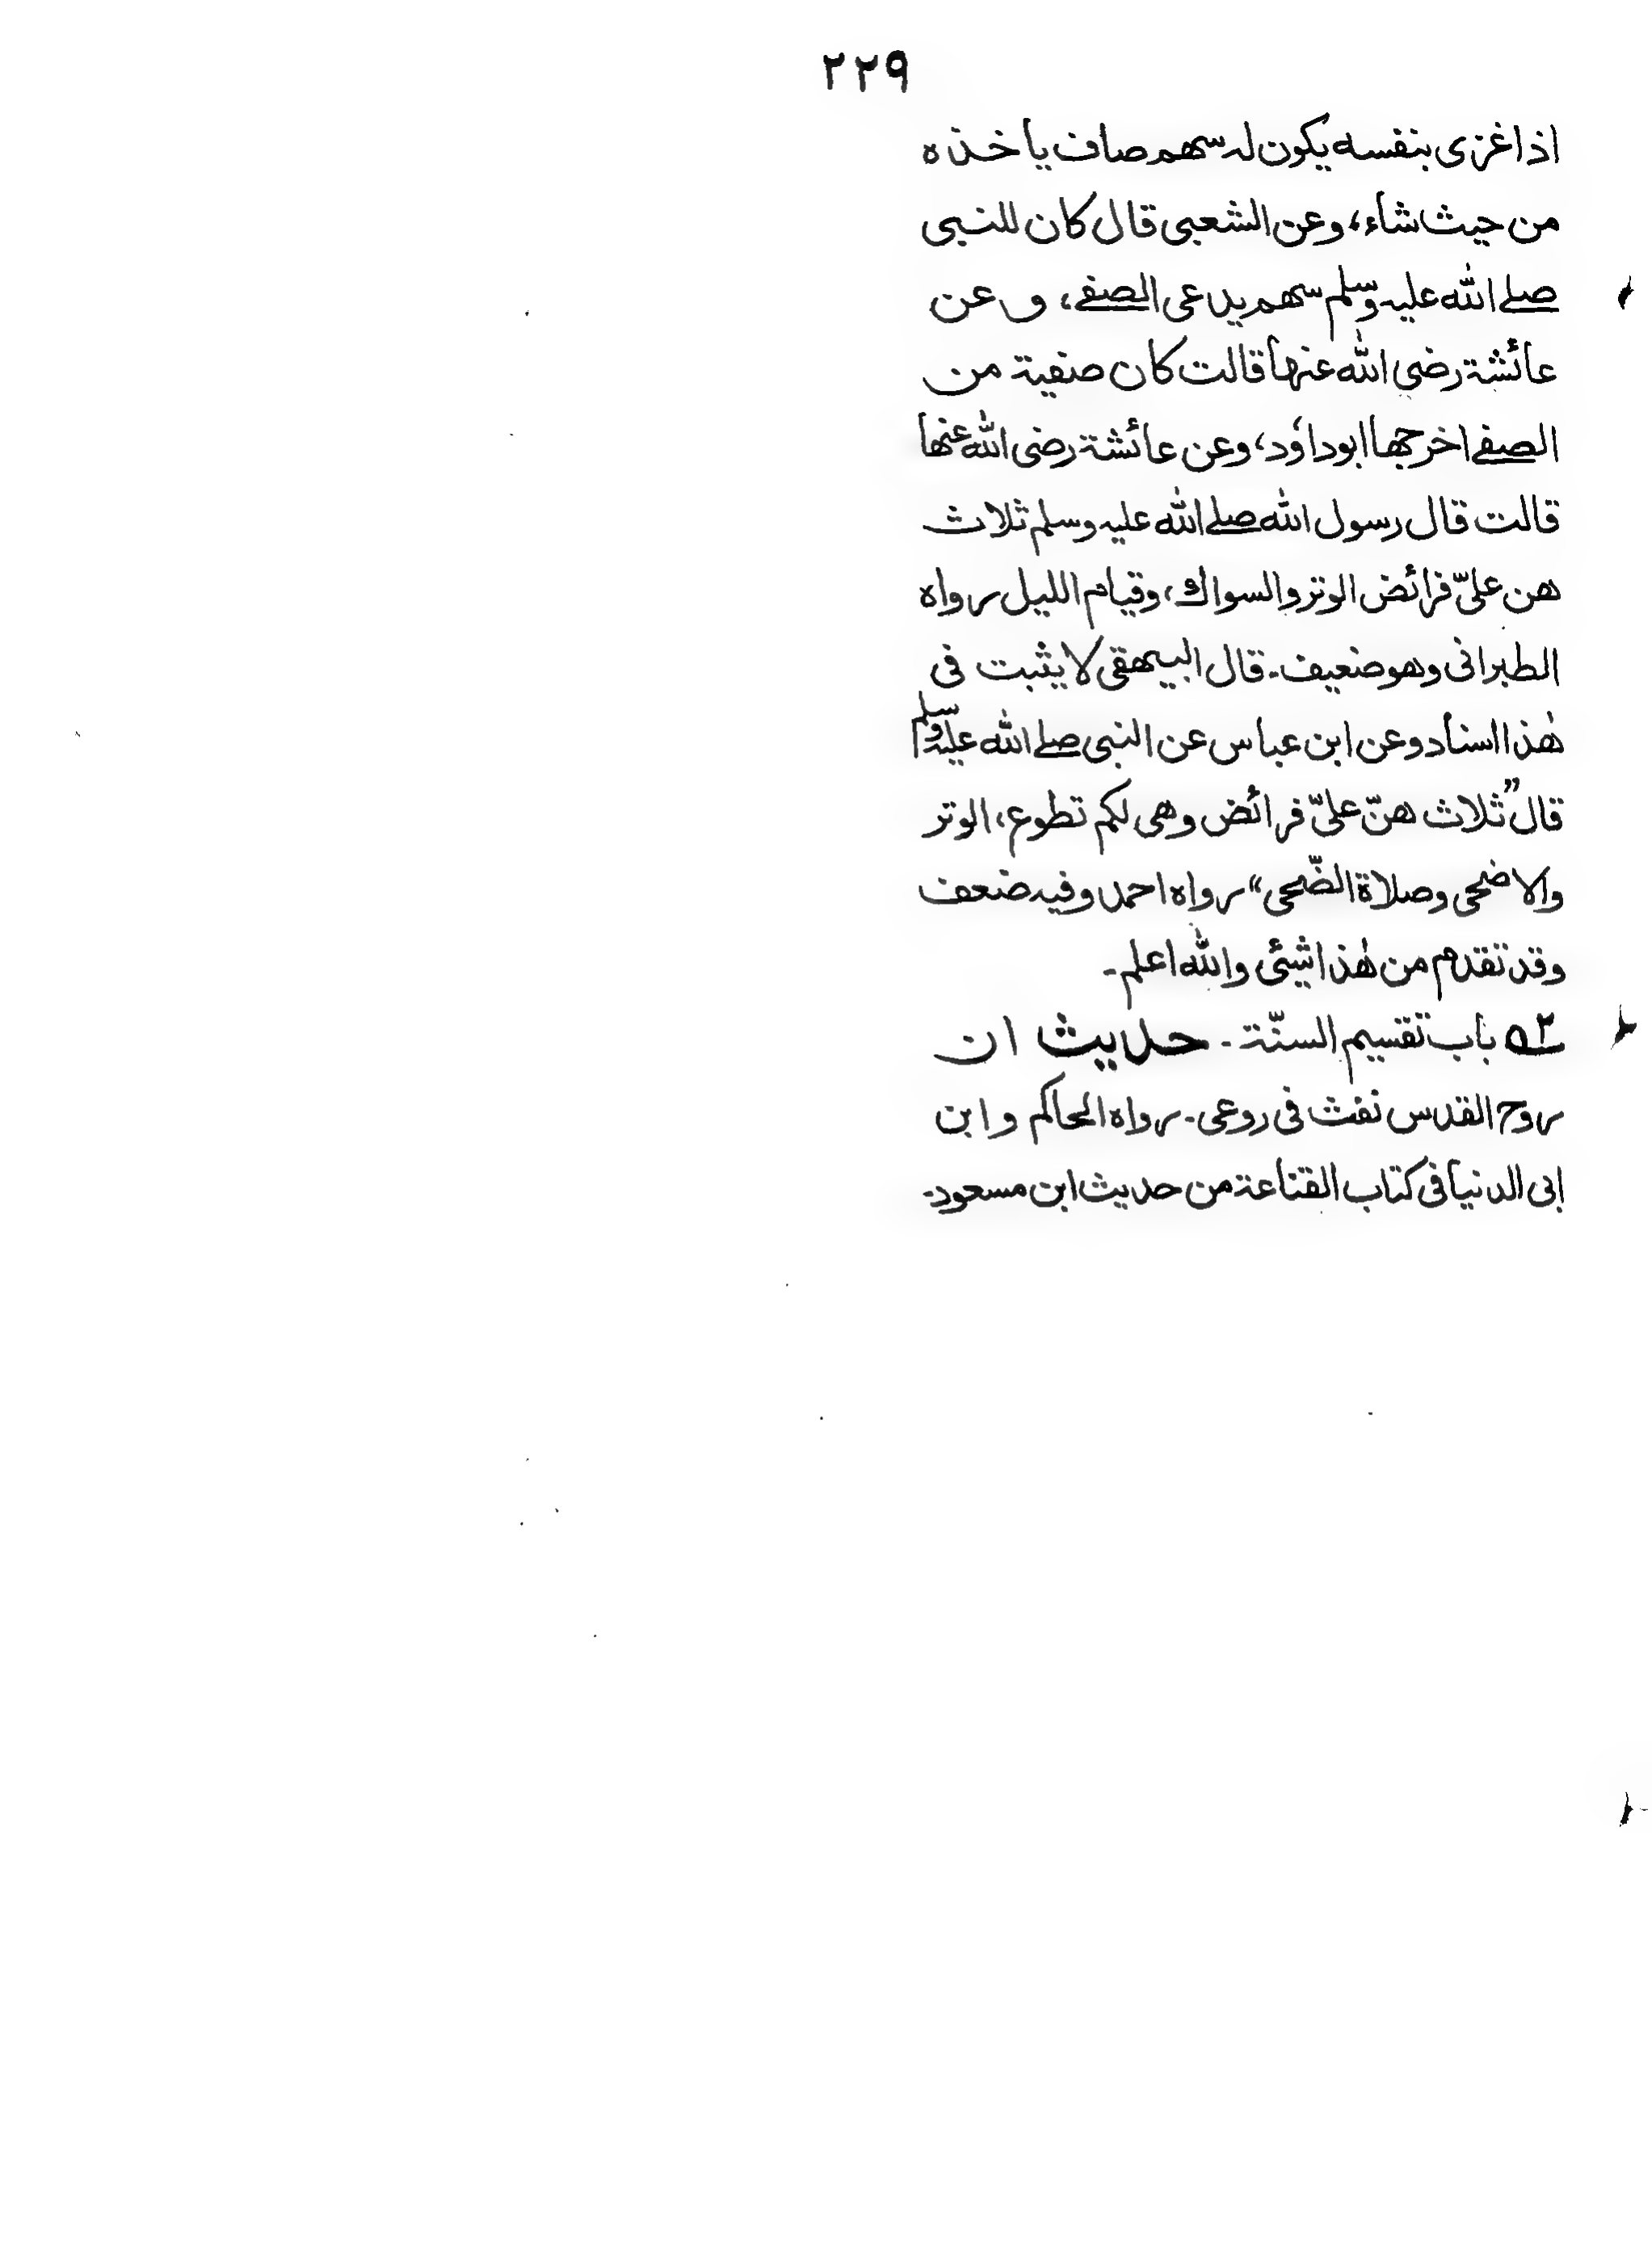 ٢٢٩
اذا غزى بنفسه يكون له سهم صاف ياخذه
من حيث شاء، وعن الشعبى قال كان للنبى
صلے الله عليه وسلم سهم يدعى الصفے، و عن
عائشة رضى الله عنها قالت كان صفية من
الصفے اخرجها ابوداؤد، وعن عائشة رضى الله عنها
قالت قال رسول الله صلے الله عليه وسلم ثلاث
هن علىّ فرائض الوتر والسواك، وقيام الليل رواه
الطبرانى وهو ضعيف۔ قال البيهقى لا يثبت فى
هٰذا اسناد وعن ابن عباس عن النبى صلے الله عليه وسلم
قال ”ثلاث هنّ علىّ فرائض وهى لكم تطوع، الوتر
والاضحى وصلاة الضّحى“ رواه احمد وفيه ضعف
وقد تقدم من هٰذا شيئى والله اعلم۔
٥٢ باب تقسيم السنّة۔ حديث ان
روح القدس نفث فى روعى۔ رواه الحاكم وابن
ابى الدنيا فى كتاب القناعة من حديث ابن مسعود۔